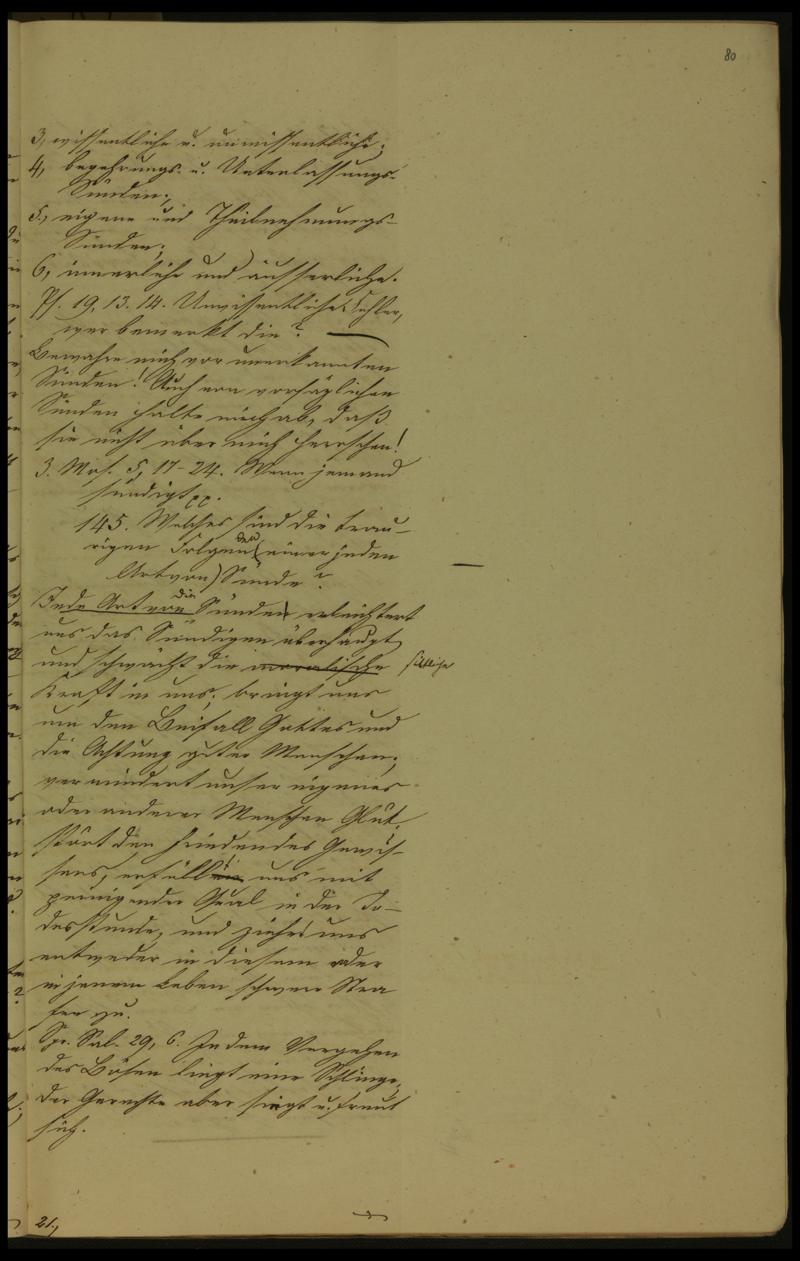 80
3, wissentliche u. unwissentliche;
4, begehungs- u. Unterlassungs-
Sünden;
5., eigene und Theilnehmungs-
Sünden;
6, innerliche und äusserliche.
Ps. 19, 13. 14. Unwissentliche Fehler,
wer bemerkt die? —
Bewahre mich vor unerkannten
Sünden! Auch von vorsäzlichen
Sünden halte mich ab, daß
sie nicht über mich herrschen!
3. Mos. 5, 17-24. Wenn jemand
sündigt pp.
145. Welches sind die trau-
rigen Folgen der (einer jeden
Art von) Sünde?
Jede Art von die Sünden erleichtert
uns das Sündigen überhaupt,
und schwächt die moralische sittliche
Kraft in uns; bringt uns
um den Beifall Gottes und
die Achtung guter Menschen;
vermindert unser eigenes
oder anderer Menschen Glük,
stört den Frieden des Gewis-
sens, erfüllt uns mit
peinigender Qual in der To-
desstunde, und zieht uns
entweder in diesem oder
in jenem Leben schwere Stra
fen zu.
Spr. Sal. 29, 6. In dem Vergehen
des Bösen liegt eine Schlinge,
der Gerechte aber singt u. freut
sich.
21.,